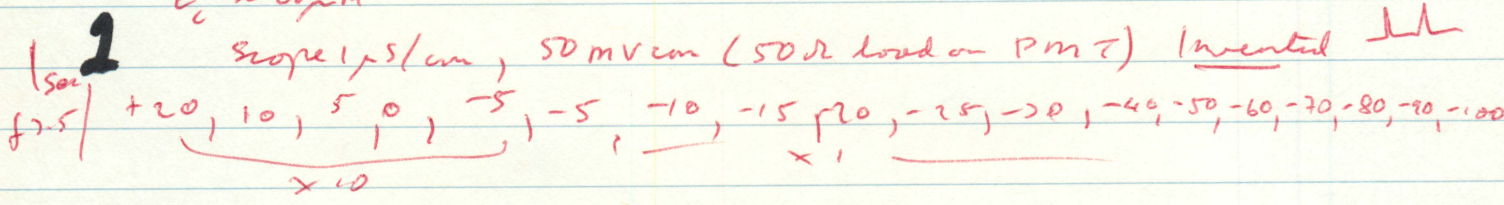 2 scope 1 μs/cm, 50 mV cm (50 Ω load on PMT) Inverted
1 sec
+20, 10, 5, 0, -5, -5, -10, -15, -20, -25, -30, -40, -50, -60, -70, -80, -90, -100
x 10 x 1